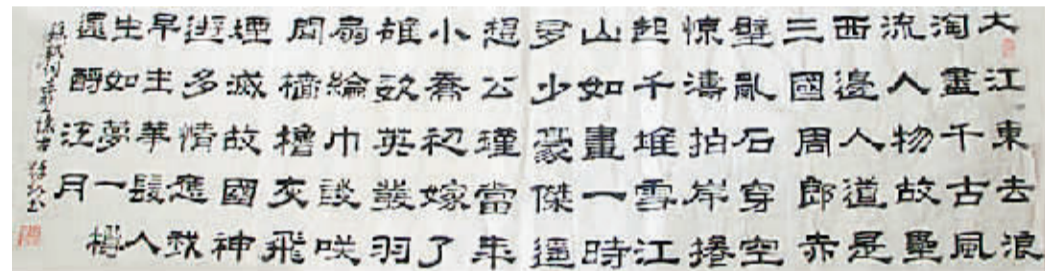 大江東去浪
淘盡千古風
流人物故壘
西邊人道是
三國周郎赤
壁亂石穿空
惊濤拍岸捲
起千堆雪江
山如畫一時
多少豪傑遥
想公瑾當年
小喬初嫁了
雄姿英發羽
扇綸巾談咲
間檣櫓灰飛
煙滅故國神
遊多情應我
早生華髮人
生如夢一樽
還酹江月